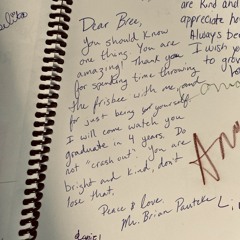 Dear Bree,
You should know
one thing. You are
amazing! Thank you
for spending time throwing
the frisbee with me, and
for just being yourself.
I will come watch you
graduate in 4 years. Do
not "crash out". You are
bright and kind, don't
lose that.
Peace & love.
Mr. Brian
are kind and
appreciate
Always
I wish
to